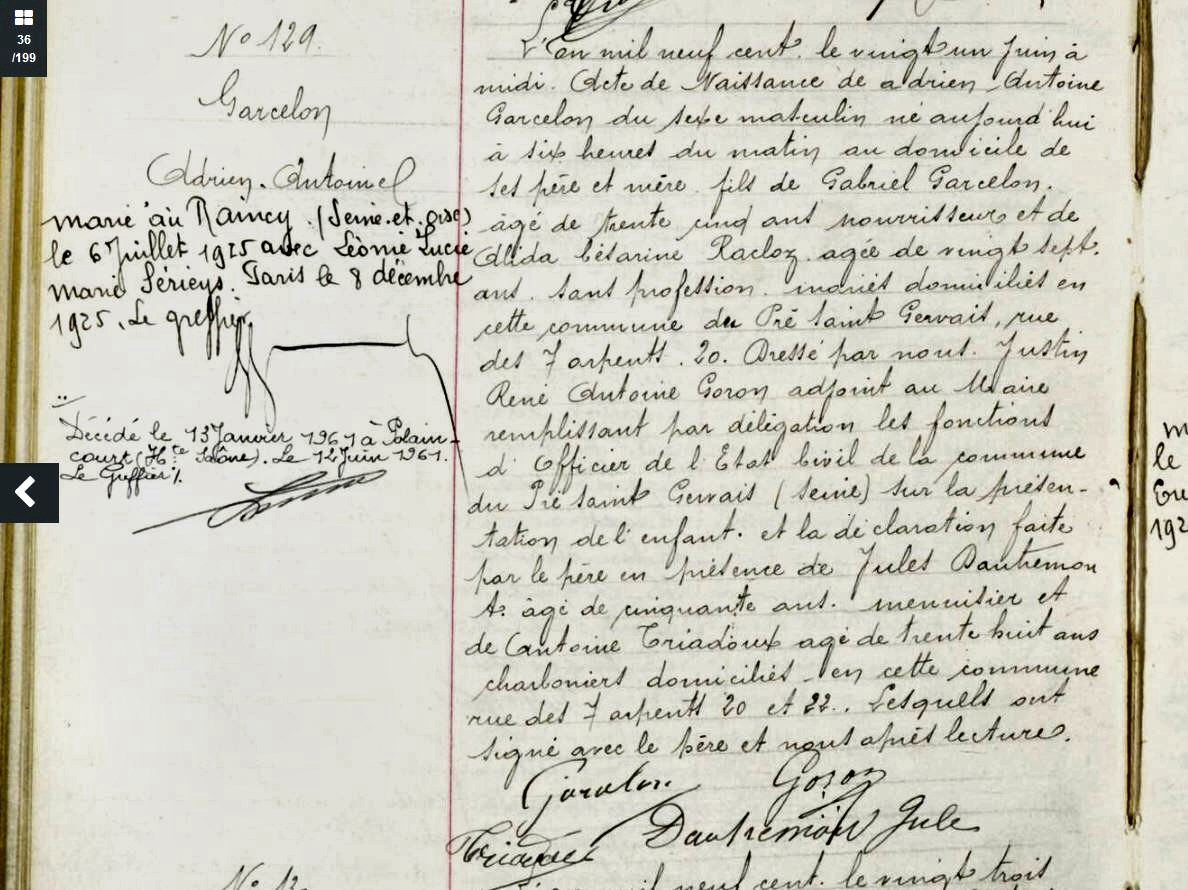 36
/199
N° 129.
Garcelon
Adrien. Antoine
marié au Raincy (Seine.et.oise)
le 6 Juillet 1925 avec Léonie Lucie
Marie Sérieys. Paris le 8 décembre
1925. Le greffier
Décédé le 13 Janvier 1961 à Polain-
court (Hte Saône). Le 12 Juin 1961.
Le Greffier
L'an mil neuf cent. le vingt un Juin à
midi. Acte de Naissance de adrien. Antoine
Garcelon du sexe masculin né aujourd'hui
à six heures du matin au domicile de
ses père et mère. fils de Gabriel Garcelon.
âgé de trente cinq ans nourrisseur et de
Alida Césarine Racloz. agée de vingt sept.
ans. sans profession. mariés domiciliés en
cette commune du Pré Saint Gervais, rue
des 7 arpents. 20. Dressé par nous. Justin
René Antoine Goron adjoint au Maire
remplissant par délégation les fonctions
d'Officier de l'Etat Civil de la commune
du Pré Saint Gervais (Seine) sur la présen-
tation de l'enfant. et la déclaration faite
par le père en présence de Jules Dautremon
t. âgé de cinquante ans. menuisier et
de Antoine Triadoux agé de trente huit ans
charboniers domiciliés en cette commune
rue des 7 arpents 20 et 22. Lesquells ont
signé avec le père et nous après lecture.
Garcelon Goron
Triadoux Dautremont Jule
N° 13
mil neuf cent. le vingt trois
m
le
192